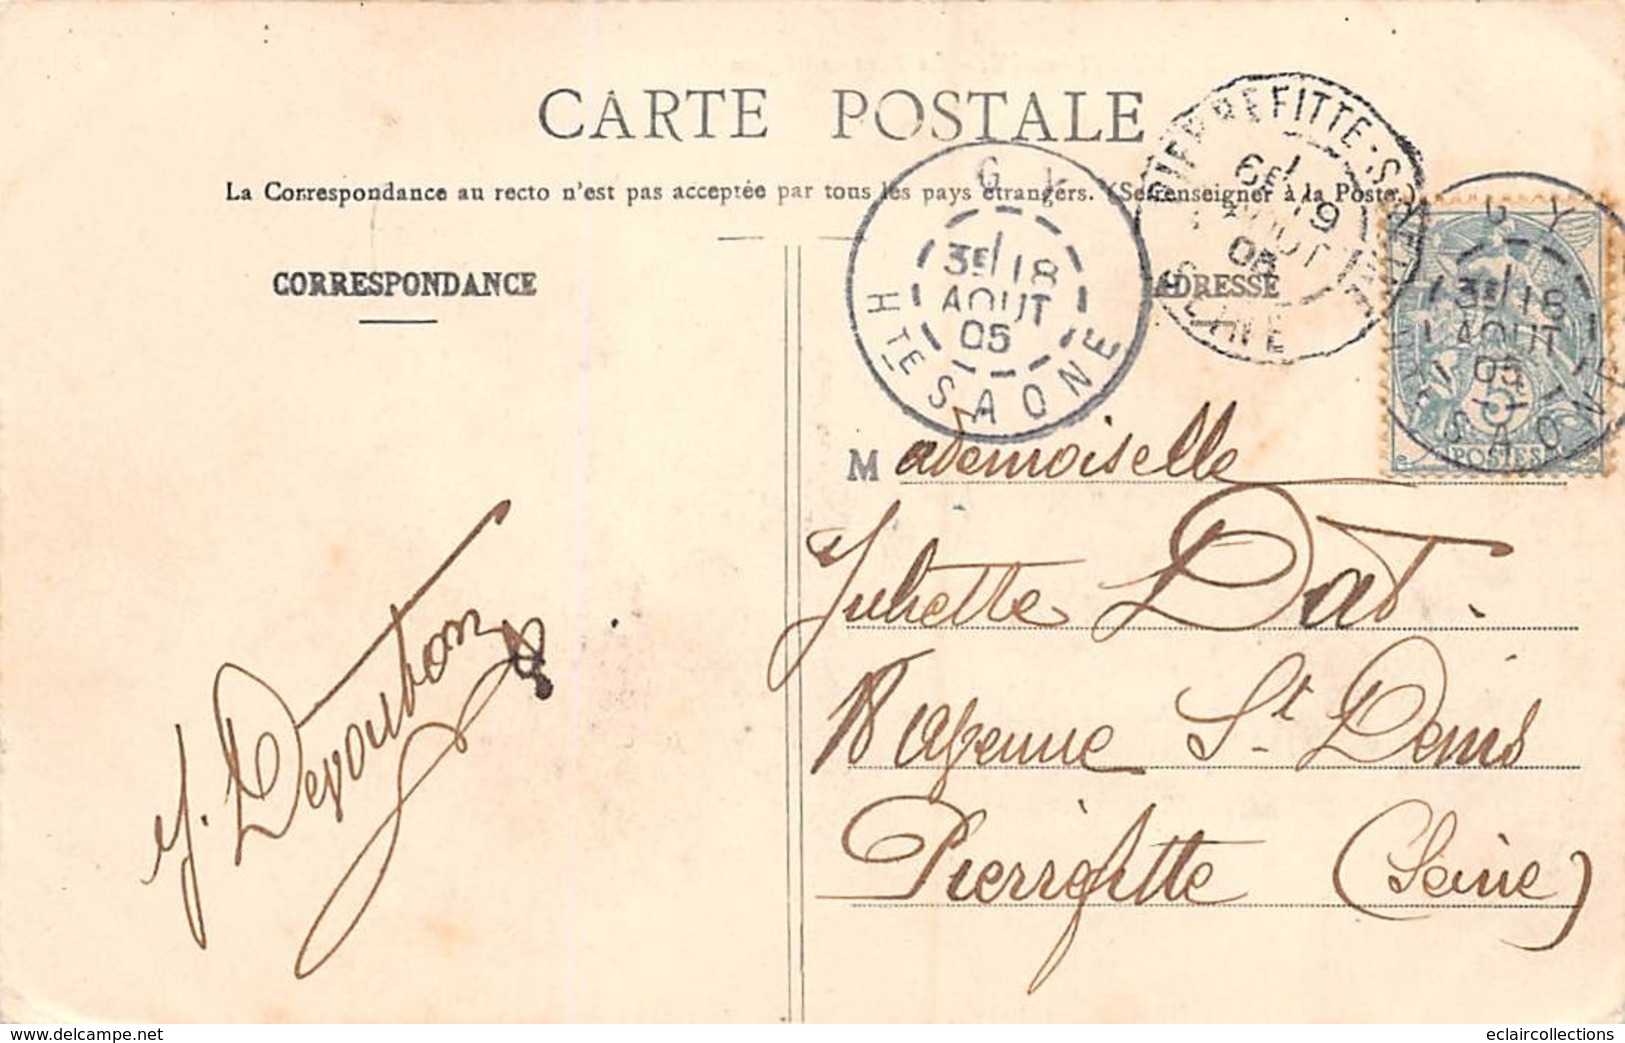 CARTE POSTALE
La Correspondance au recto n'est pas acceptée par tous les pays étrangers. (Se renseigner à la Poste.)
CORRESPONDANCE
ADRESSE
GY
3E 18
AOUT
05
HTE SAONE
PIERREFITTE-S-
6E 19
AOUT
05
SEINE
GY
3E 18
AOUT
05
HTE SAONE
5
POSTES
Mademoiselle
Juliette Dat.
18 avenue St Denis
Pierrefitte (Seine)
delcampe.net
eclaircollections